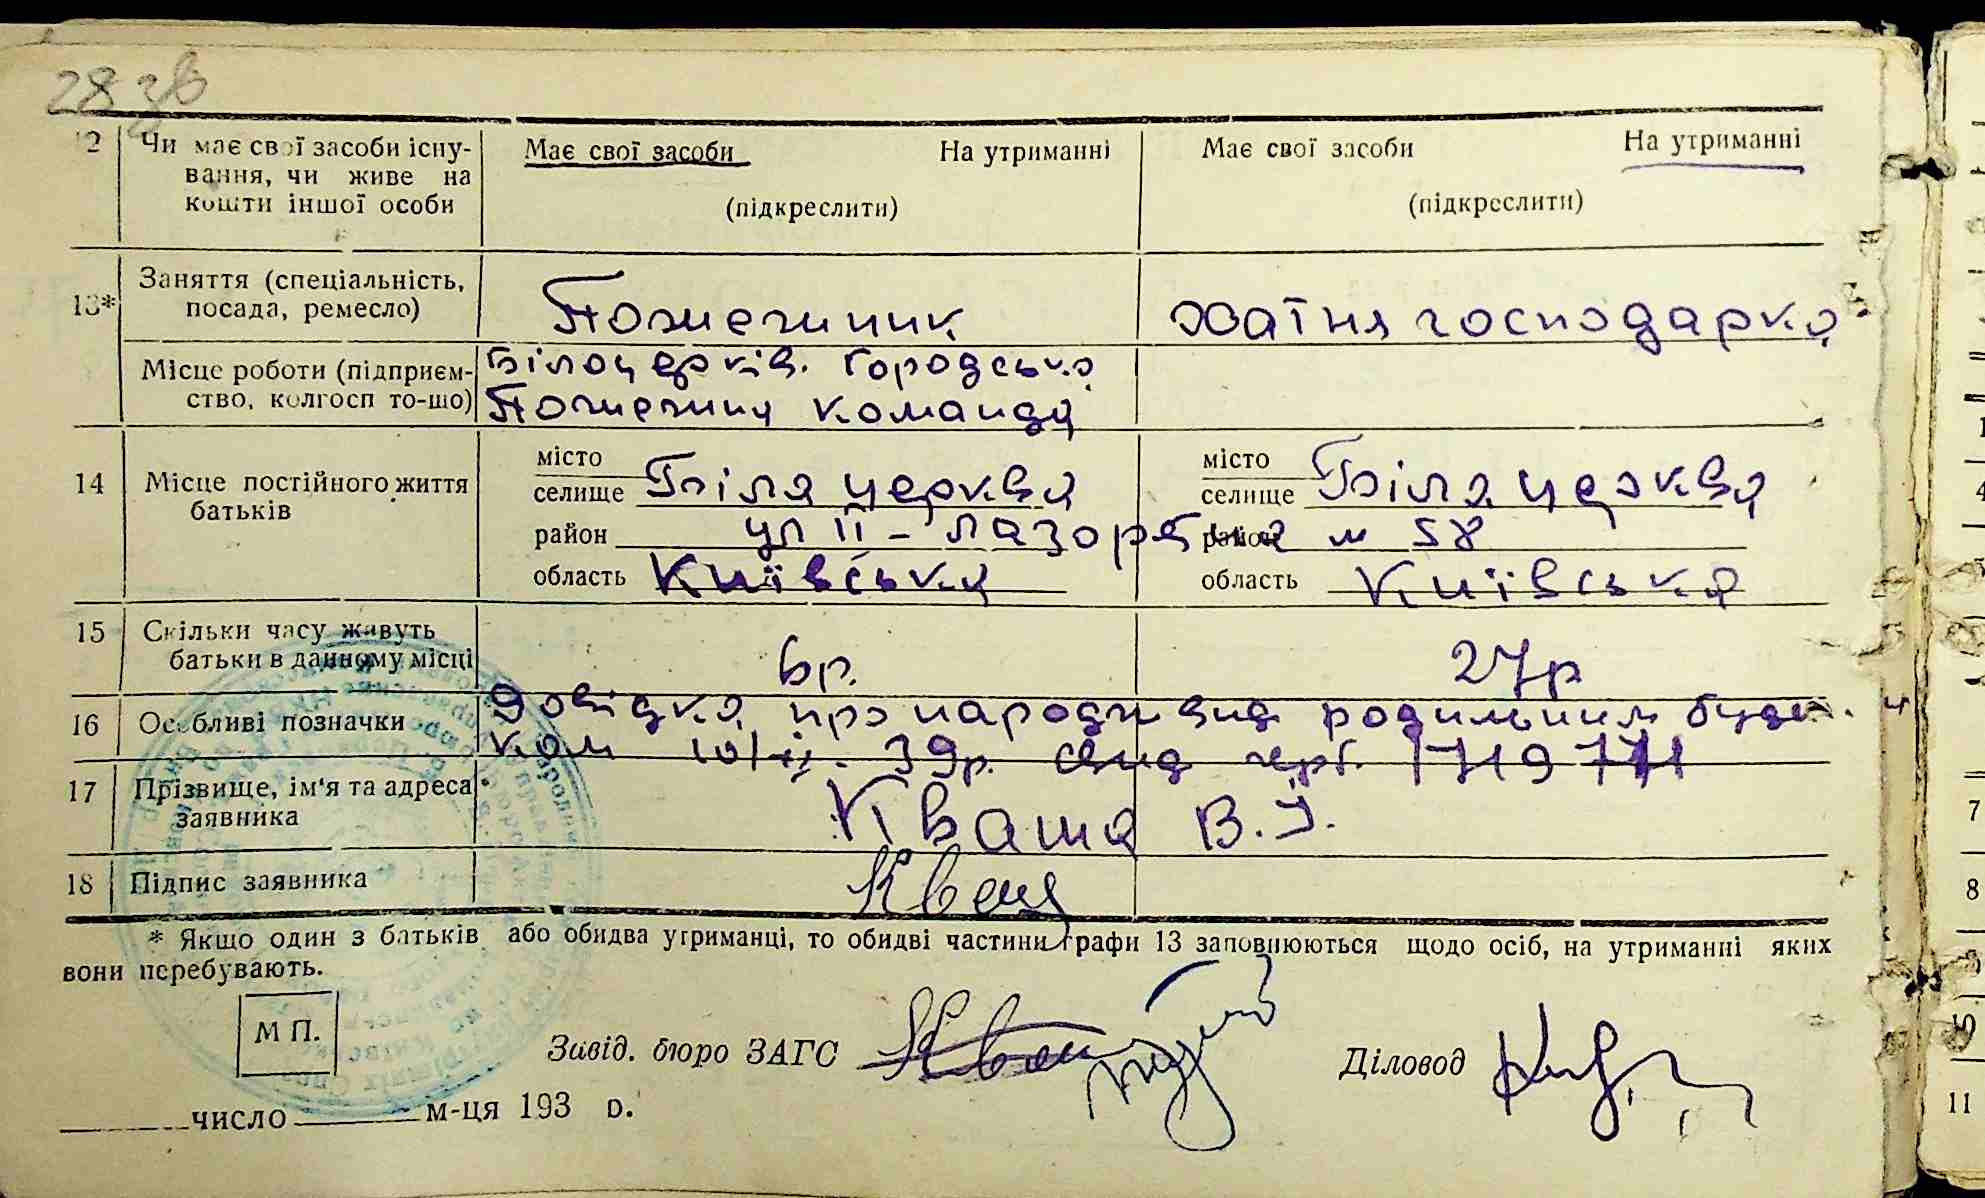 28 зв
12 Чи має свої засоби існу-
вання, чи живе на
кошти іншої особи
Має свої засоби На утриманні
(підкреслити)
Має свої засоби На утриманні
(підкреслити)
13* Заняття (спеціальність,
посада, ремесло)
Пожежник
хатня господарка
Місце роботи (підприєм-
ство, колгосп то-що)
Білоцерків. Городська
Пожежна команда
14 Місце постійного життя
батьків
місто
селище Біла церква
район ул II - Лазоретна № 58
область Київська
місто
селище Біла церква
район
область Київська
15 Скільки часу живуть
батьки в данному місці
6р.
27р
16 Особливі позначки
Довідка про народження родильним будин.
ком 10/II - 39р.
17 Прізвище, ім'я та адреса
заявника
Кваша В. І.
18 Підпис заявника
Кваша
* Якщо один з батьків або обидва утриманці, то обидві частини графи 13 заповнюються щодо осіб, на утриманні яких
вони перебувають.
М П.
Завід. бюро ЗАГС
Діловод
число м-ця 193 р.
7
8
10
11